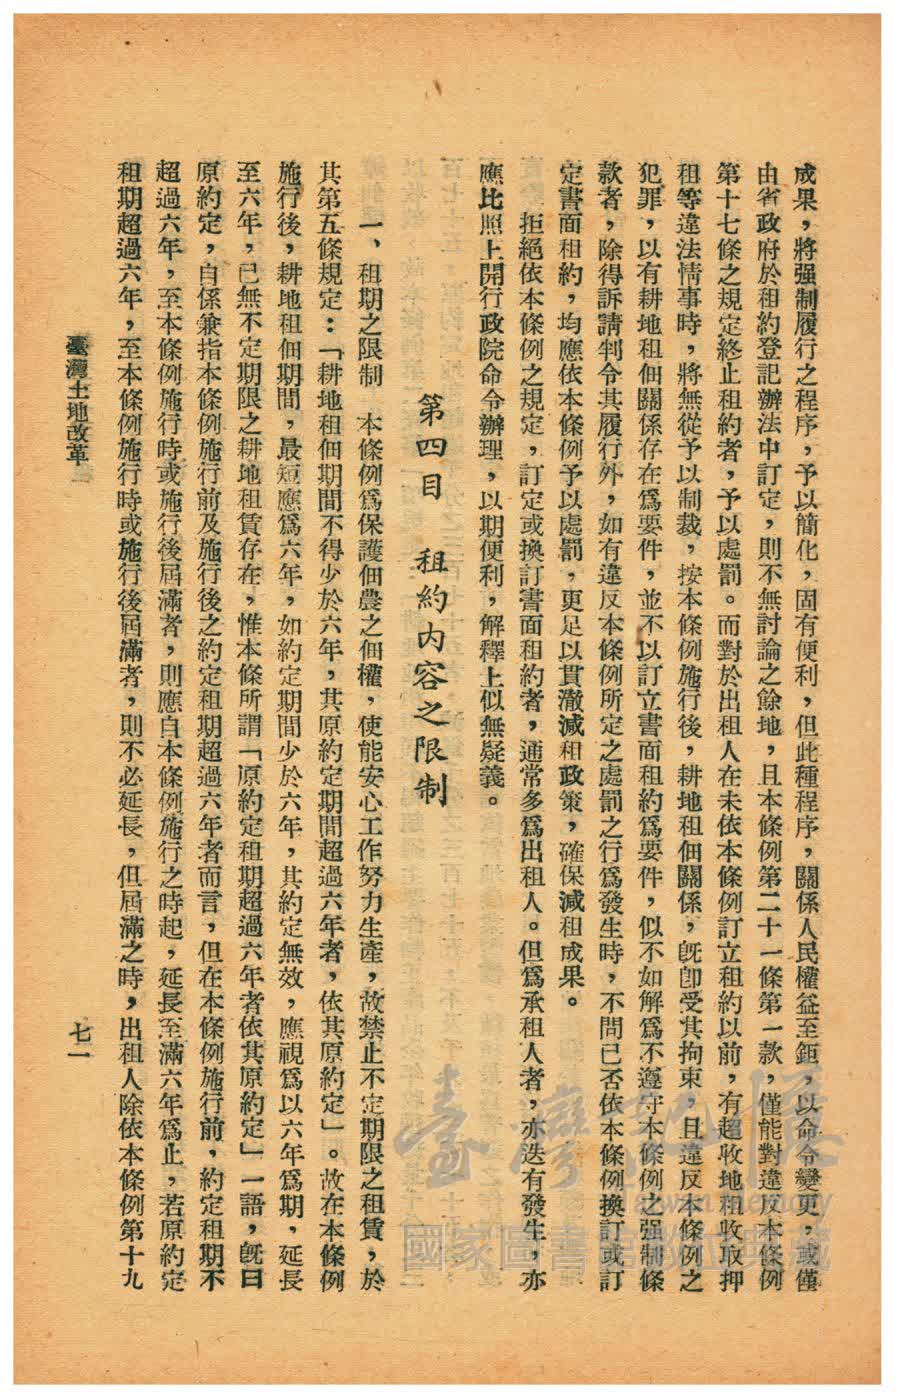 成果，將强制履行之程序，予以簡化，固有便利，但此種程序，關係人民權益至鉅，以命令變更，或僅
由省政府於租約登記辦法中訂定，則不無討論之餘地，且本條例第二十一條第一款，僅能對違反本條例
第十七條之規定終止租約者，予以處罰。而對於出租人在未依本條例訂立租約以前，有超收地租收取押
租等違法情事時，將無從予以制裁，按本條例施行後，耕地租佃關係，旣卽受其拘束，且違反本條例之
犯罪，以有耕地租佃關係存在爲要件，並不以訂立書面租約爲要件，似不如解爲不遵守本條例之强制條
款者，除得訴請判令其履行外，如有違反本條例所定之處罰之行爲發生時，不問已否依本條例換訂或訂
定書面租約，均應依本條例予以處罰，更足以貫澈減租政策，確保減租成果。
拒絕依本條例之規定，訂定或換訂書面租約者，通常多爲出租人。但爲承租人者，亦迭有發生，亦
應比照上開行政院命令辦理，以期便利，解釋上似無疑義。
第四目　租約內容之限制
一、租期之限制　本條例爲保護佃農之佃權，使能安心工作努力生產，故禁止不定期限之租賃，於
其第五條規定：「耕地租佃期間不得少於六年，其原約定期間超過六年者，依其原約定」。故在本條例
施行後，耕地租佃期間，最短應爲六年，如約定期間少於六年，其約定無效，應視爲以六年爲期，延長
至六年，已無不定期限之耕地租賃存在，惟本條所謂「原約定租期超過六年者依其原約定」一語，旣曰
原約定，自係兼指本條例施行前及施行後之約定租期超過六年者而言，但在本條例施行前，約定租期不
超過六年，至本條例施行時或施行後屆滿者，則應自本條例施行之時起，延長至滿六年爲止，若原約定
租期超過六年，至本條例施行時或施行後屆滿者，則不必延長，但屆滿之時，出租人除依本條例第十九
臺灣土地改革
七一
臺灣記憶
Taiwan Memory
國家圖書館數位典藏